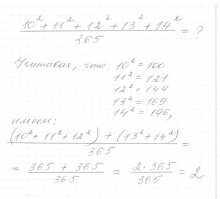 10² + 11² + 12² + 13² + 14² / 365 = ?
Учитывая, что: 10² = 100
11² = 121
12² = 144
13² = 169
14² = 196,
имеем:
(10² + 11² + 12²) + (13² + 14²) / 365 =
= 365 + 365 / 365 = 2·365 / 365 = 2